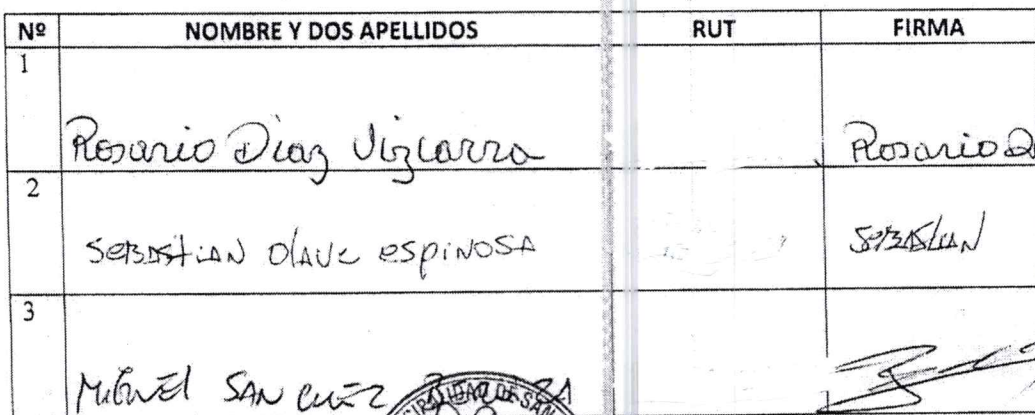 Nº NOMBRE Y DOS APELLIDOS RUT FIRMA
1
Rosario Diaz Vizcarra Rosario D
2
SEBASTIAN OLAVE ESPINOSA SEBASTIAN
3
MIGUEL SANCHEZ